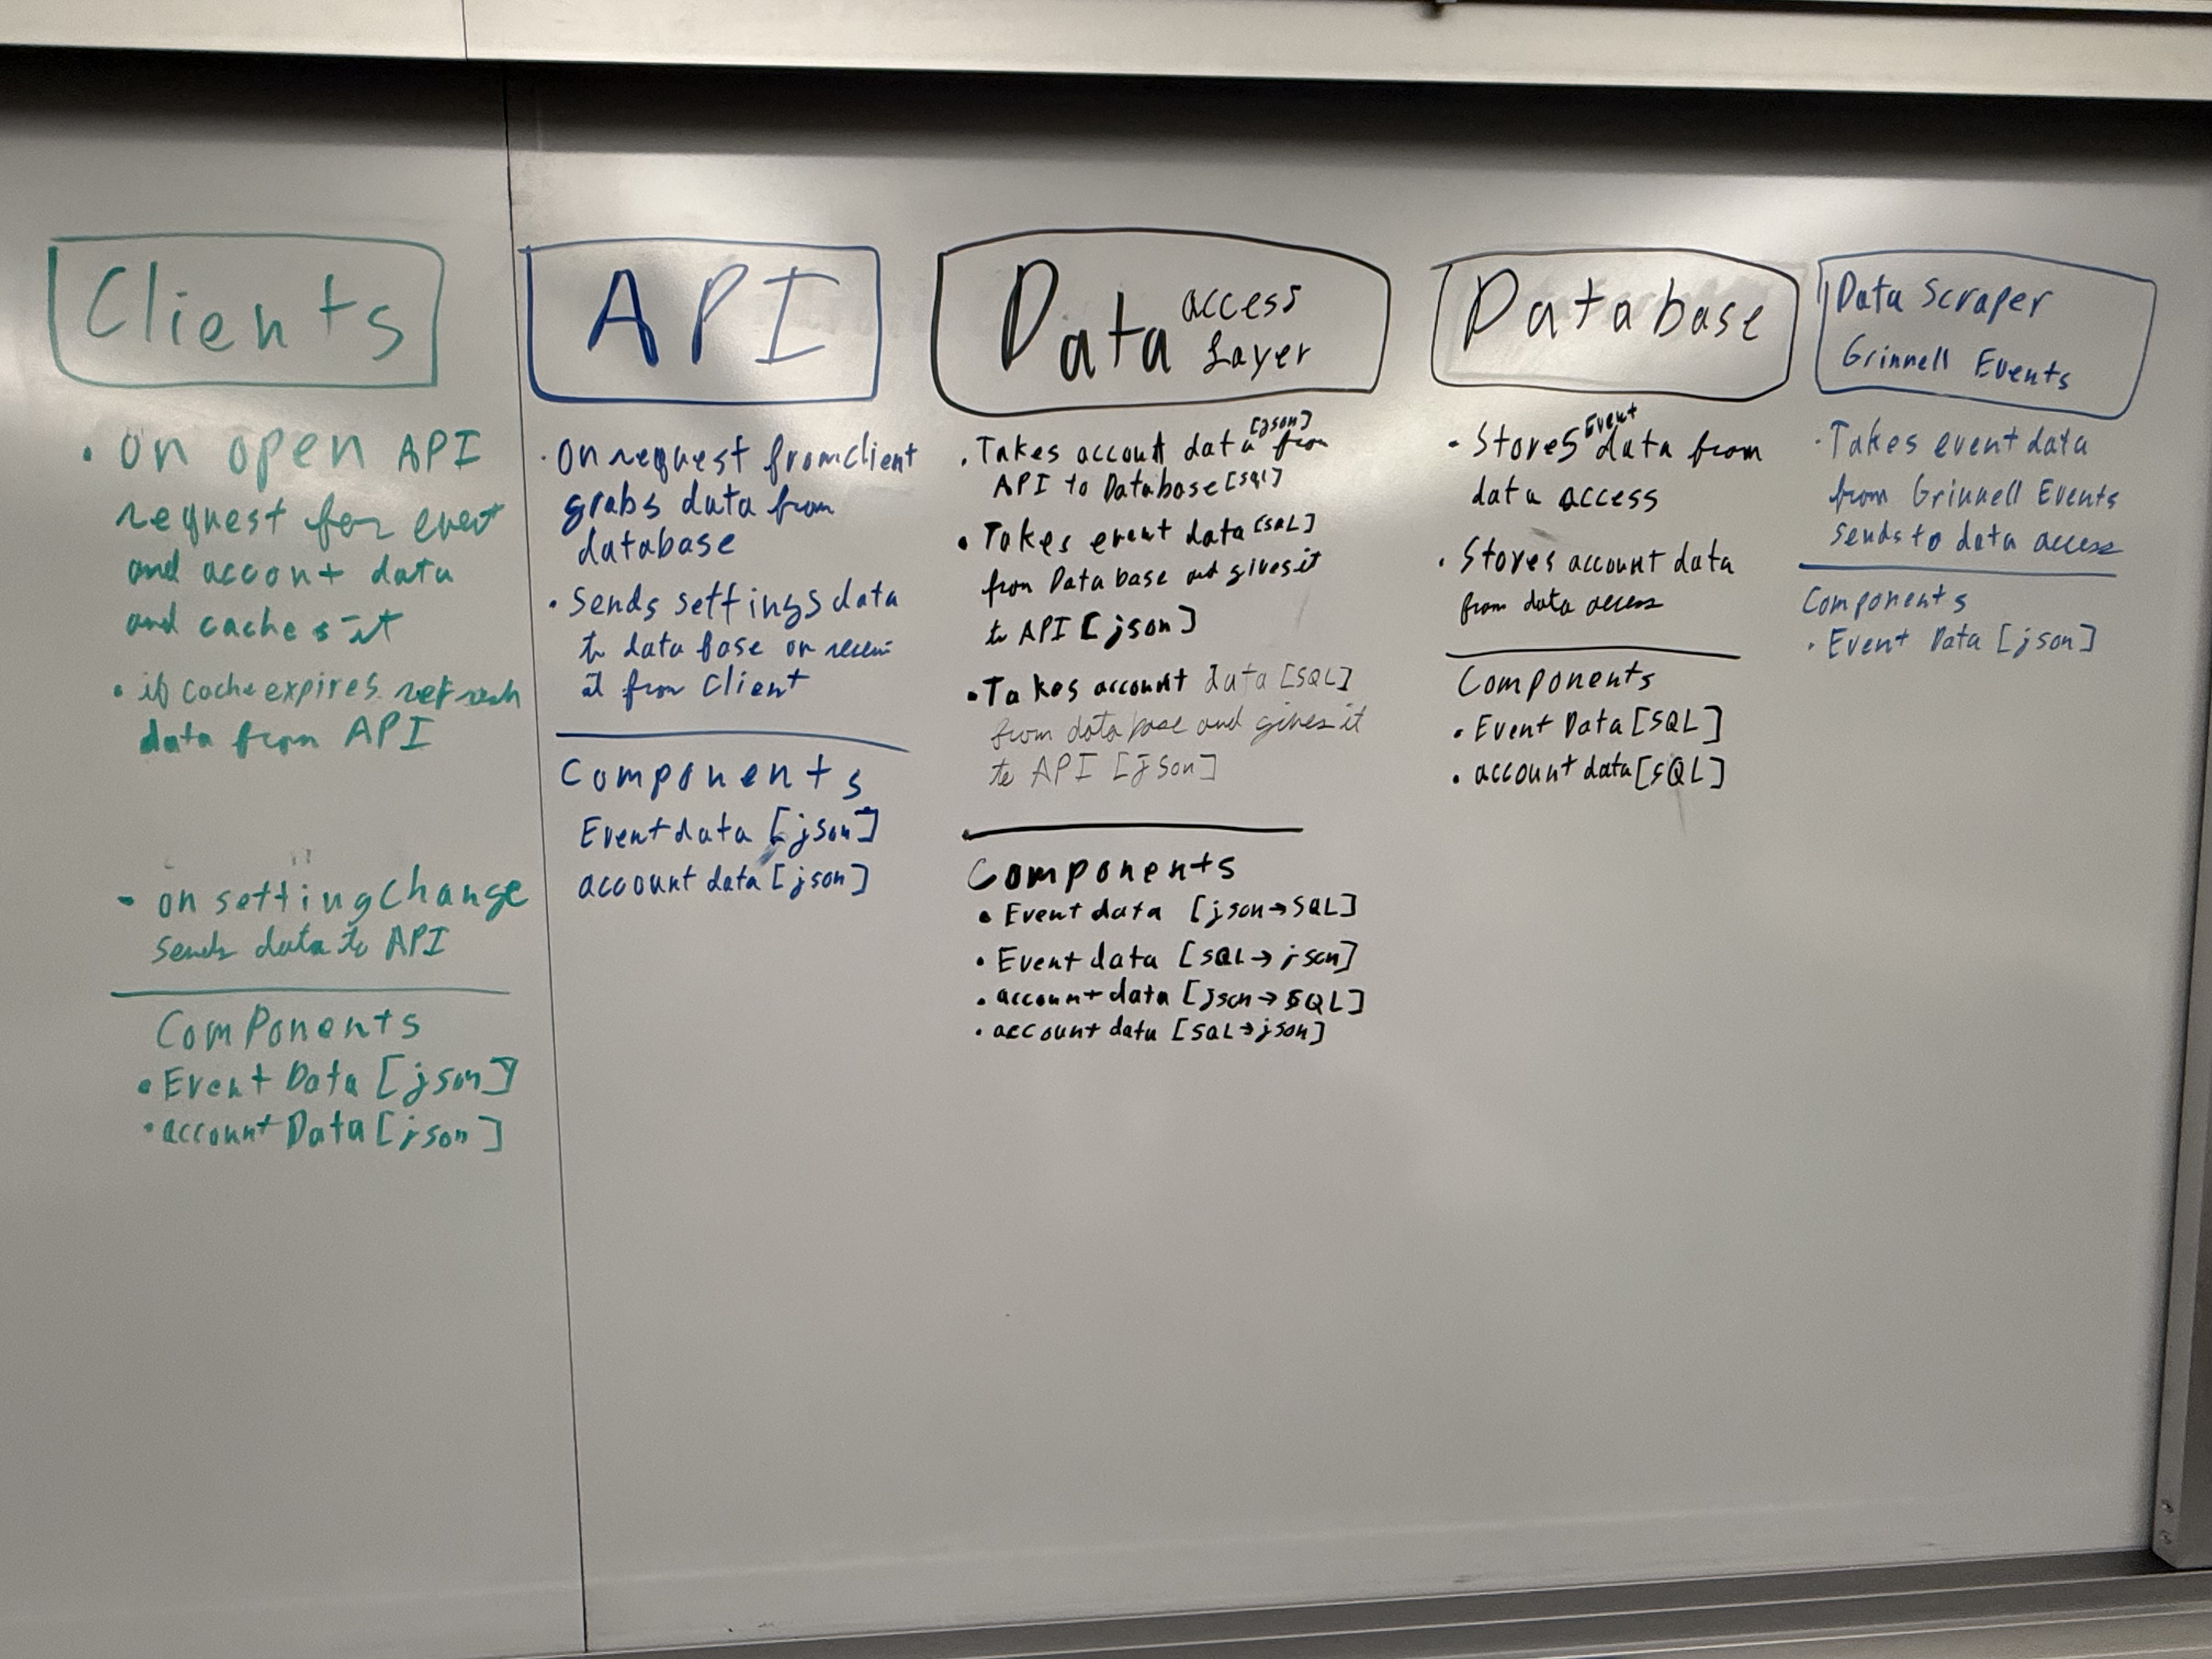 Clients
• on open API
request for event
and accont data
and caches it
• if cache expires refresh
data from API
- on setting change
sends data to API
Components
• Event Data [json]
• account Data [json]
API
• On request from client
grabs data from
database
• Sends settings data
to data base on
it from Client
Components
Event data [json]
account data [json]
Data access
Layer
• Takes account data [json] from
API to Database [sql]
• Takes event data [SQL]
from Database and gives it
to API [json]
• Takes account data [SQL]
from database and gives it
to API [json]
Components
• Event data [json→SQL]
• Event data [SQL→json]
• account data [json→SQL]
• account data [SQL→json]
Database
- Stores Event data from
data access
• Stores account data
from data access
Components
• Event Data [SQL]
• account data [SQL]
Data Scraper
Grinnell Events
• Takes event data
from Grinnell Events
sends to data access
Components
• Event Data [json]